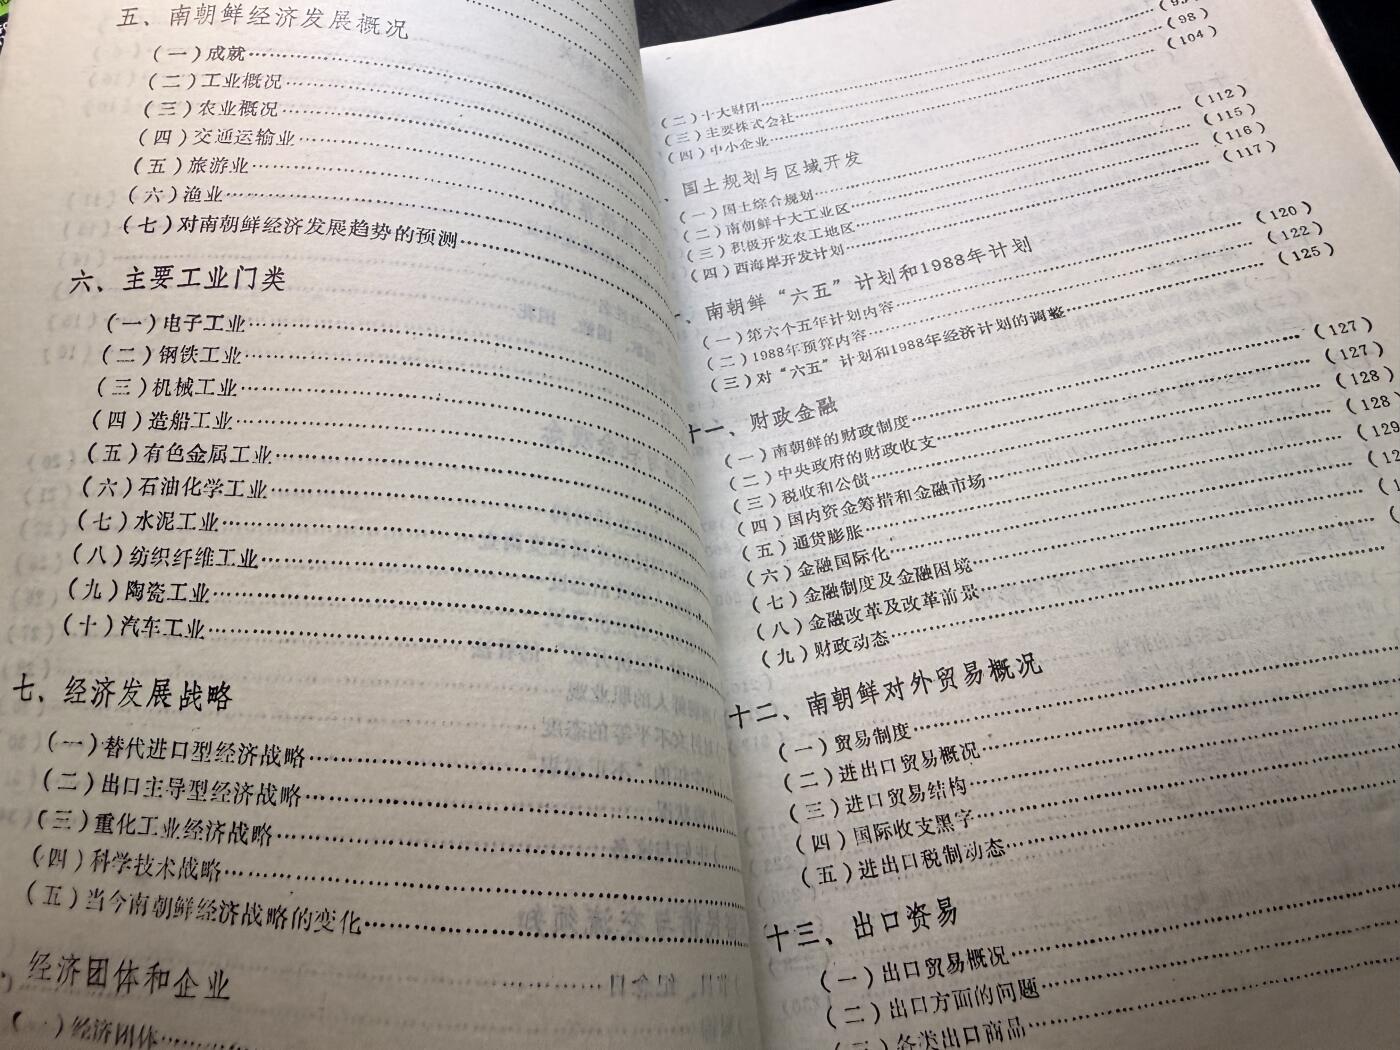 五、南朝鲜经济发展概况
(一)成就
(二)工业概况
(三)农业概况
(四)交通运输业
(五)旅游业
(六)渔业
(七)对南朝鲜经济发展趋势的预测
六、主要工业门类
(一)电子工业
(二)钢铁工业
(三)机械工业
(四)造船工业
(五)有色金属工业
(六)石油化学工业
(七)水泥工业
(八)纺织纤维工业
(九)陶瓷工业
(十)汽车工业
七、经济发展战略
(一)替代进口型经济战略
(二)出口主导型经济战略
(三)重化工业经济战略
(四)科学技术战略
(五)当今南朝鲜经济战略的变化
经济团体和企业
(一)经济团体
(二)十大财团 (98)
(三)主要株式会社
(四)中小企业 (104)
国土规划与区域开发
(一)国土综合规划 (112)
(二)南朝鲜十大工业区 (115)
(三)积极开发农工地区 (116)
(四)西海岸开发计划 (117)
、南朝鲜“六五”计划和1988年计划
(一)第六个五年计划内容 (120)
(二)1988年预算内容 (122)
(三)对“六五”计划和1988年经济计划的调整 (125)
十一、财政金融
(一)南朝鲜的财政制度 (127)
(二)中央政府的财政收支 (127)
(三)税收和公债 (128)
(四)国内资金筹措和金融市场 (128)
(五)通货膨胀 (129
(六)金融国际化
(七)金融制度及金融困境
(八)金融改革及改革前景
(九)财政动态
十二、南朝鲜对外贸易概况
(一)贸易制度
(二)进出口贸易概况
(三)进口贸易结构
(四)国际收支黑字
(五)进出口税制动态
十三、出口贸易
(一)出口贸易概况
(二)出口方面的问题
(三)各类出口商品